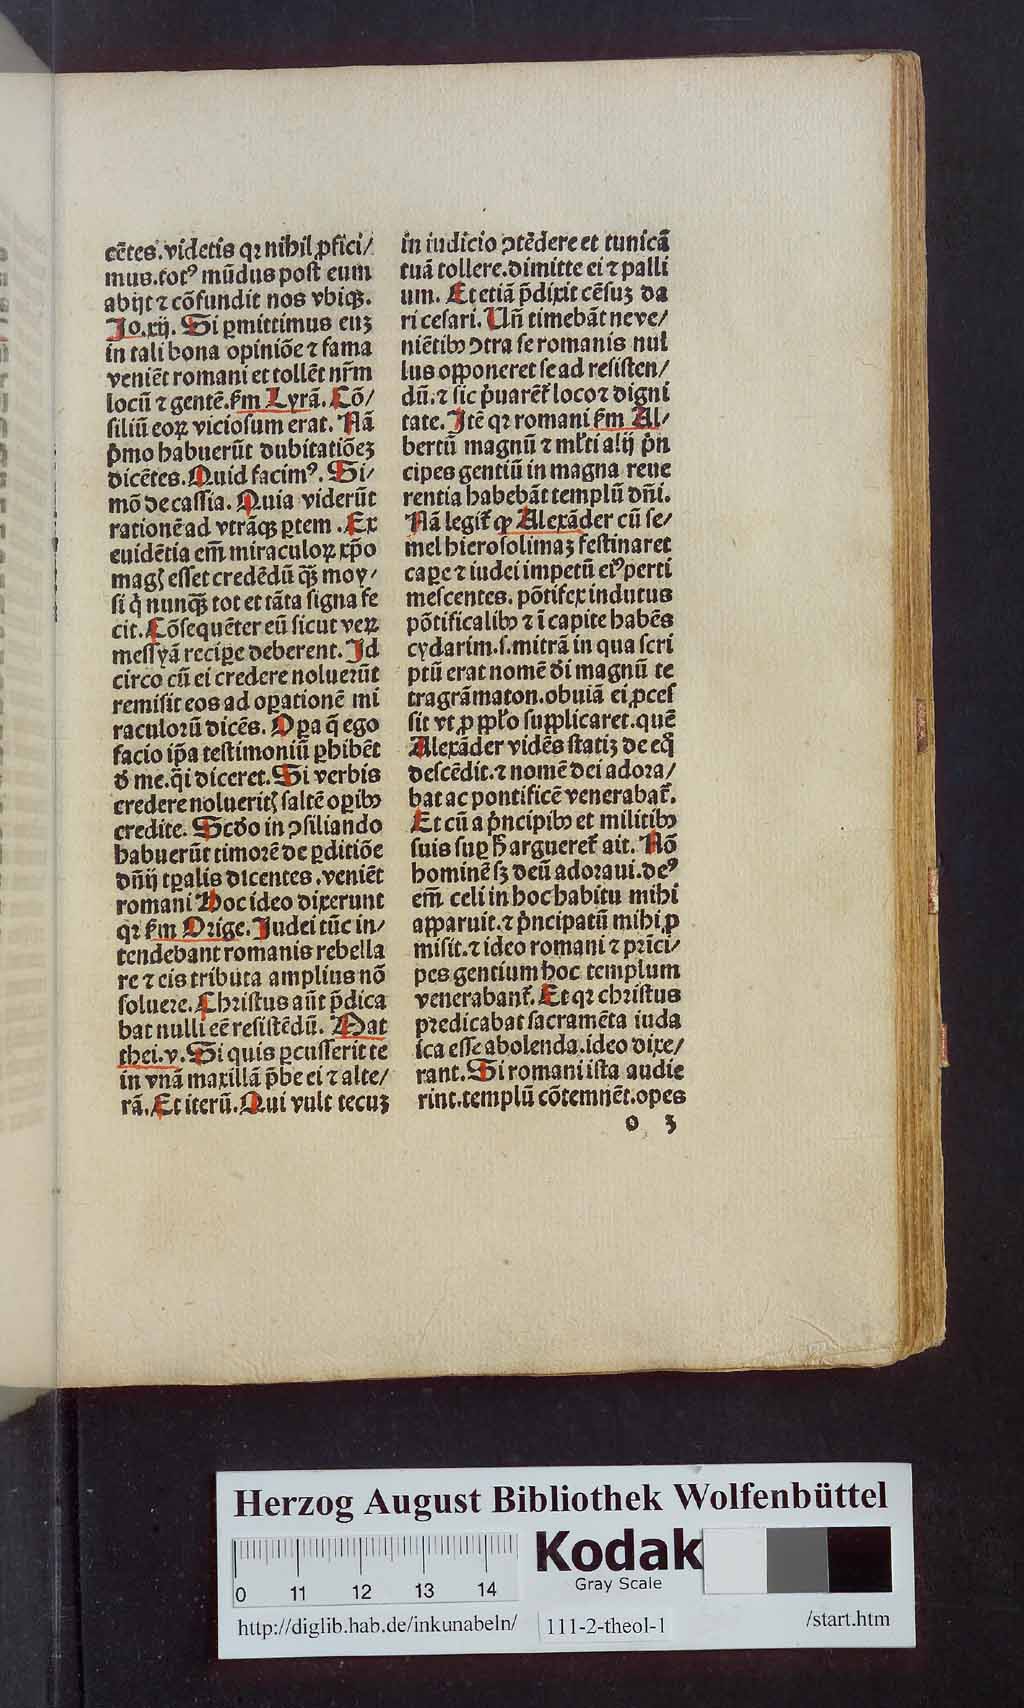 cētes. videtis qꝛ nihil ꝓfici/
mus. totꝰ mūdus post eum
abijt ⁊ cōfundit nos vbiqꝫ.
Jo. xij. Si ꝑmittimus euꝫ
in tali bona opiniōe ⁊ fama
veniēt romani et tollēt nr̄m
locū ⁊ gentē. ẜm Lyrā. Cō/
siliū eoꝝ viciosum erat. Nā
p̍mo habuerūt dubitatiōeꝫ
dicētes. Quid facimꝰ. Si/
mō de cassia. Quia viderūt
rationē ad vtrāqꝫ ꝑtem. Ex
euidētia em̄ miraculoꝝ xp̄o
magꝭ esset credēdū qꝫ̄ moy/
si q̍ nunqꝫ̄ tot et tāta signa fe
cit. Cōsequēter eū sicut veꝝ
messyā reciꝑe deberent. Jd
circo cū ei credere noluerūt
remisit eos ad oꝑationē mi
raculorū dicēs. Oꝑa q̄ ego
facio ip̄a testimoniū ꝑhibēt
đ me. q̄i diceret. Si verbis
credere nolueritꝭ saltē oꝑibꝰ
credite. Scđo in ꝯsiliando
habuerūt timorē de ꝑditiōe
dn̄ij tꝑalis dicentes. veniēt
romani Hoc ideo dixerunt
qꝛ ẜm Orige. Judei tūc in/
tendebant romanis rebella
re ⁊ eis tributa amplius nō
soluere. Christus aūt p̄dica
bat nulli eē resistēdū. Mat
thei. v. Si quis ꝑcusserit te
in vnā maxillā p̄be ei ⁊ alte/
rā. Et iterū. Qui vult tecuꝫ
in iudicio ꝯtēdere et tunicā
tuā tollere. dimitte ei ⁊ palli
um. Et etiā p̄dixit cēsuꝫ da
ri cesari. Un̄ timebāt ne ve/
niētibꝰ ꝯtra se romanis nul
lus opponeret se ad resisten/
dū. ⁊ sic p̍uarēt̄ loco ⁊ digni
tate. Jtē qꝛ romani ẜm Al/
bertū magnū ⁊ ml̄ti alij p̍n
cipes gentiū in magna reue
rentia habebāt templū dn̄i.
Nā legit̄ ꝙ Alexāder cū se/
mel hierosolimaꝫ festinaret
caꝑe ⁊ iudei impetū eiꝰ perti
mescentes. pōtifex indutus
pōtificalibꝰ ⁊ ī capite habēs
cydarim .s. mitrā in qua scri
ptū erat nomē đi magnū te
tragrāmaton. obuiā ei ꝓces
sit vt ꝓ ppl̄o supplicaret. quē
Alexāder vidēs statiꝫ de eq̊
descēdit. ⁊ nomē dei adora/
bat ac pontificē venerabat̄.
Et cū a p̍ncipibꝰ et militibꝰ
suis suꝑ ħ argueret̄ ait. Nō
hominē sꝫ deū adoraui. deꝰ
em̄ celi in hoc habitu mihi
apparuit. ⁊ p̍ncipatū mihi ꝓ
misit. ⁊ ideo romani ⁊ prīci/
pes gentium hoc templum
venerabant̄. Et qꝛ christus
predicabat sacramēta iuda
ica esse abolenda. ideo dixe/
rant. Si romani ista audie
rint. templū cōtemnēt. opes
o 3
Herzog August Bibliothek Wolfenbüttel
0 11 12 13 14
Kodak
Gray Scale
http://diglib.hab.de/inkunabeln/ 111-2-theol-1 /start.htm